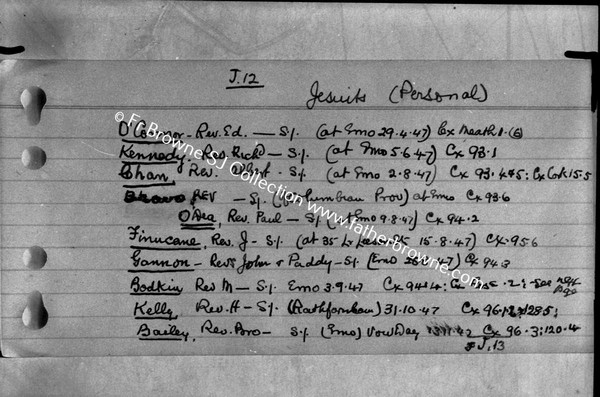 J.12
Jesuits (Personal)
O'Connor - Rev. Ed. — S.J. (at Emo 29.4.47) Cx Meath 1.(6)
Kennedy, Rev. Rich^d - S.J. (at Emo 5.6.47) Cx 93.1
Chan, Rev. - S.J. (at Emo 2.8.47) Cx 93.4&5; Cx Cork 15.5
Bravo REV — S.J. (Prov) at Emo Cx 93.6
O'Dea, Rev. Paul — S.J. (at Emo 9.8.47) Cx 94.2
Finucane, Rev. J - S.J. (at 35 Lr Leeson St 15.8.47) Cx 95.6
Gannon - Revs John & Paddy - S.J. (Emo .47) Cx 94.3
Bodkin Rev M — S.J. Emo 3.9.47 Cx 94.14; see next page
Kelly, Rev. H - S.J. (Rathfarnham) 31.10.47 Cx 96.1
Bailey, Rev. Bro - S.J. (Emo) Vow Day Cx 96.3; 120.4
& J.13
© Fr Browne SJ Collection www.fatherbrowne.com